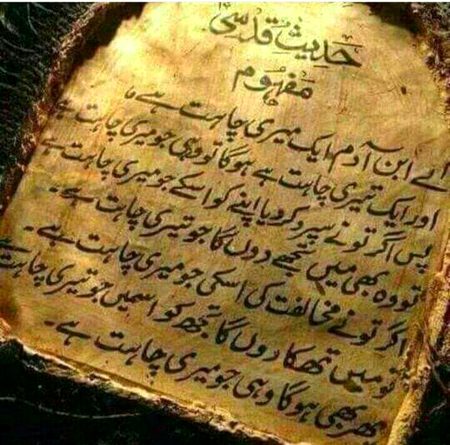 حدیث قدسی
مفہوم
اے ابن آدم! ایک میری چاہت ہے،
اور ایک تیری چاہت ہے ہوگا تو وہی جو میری چاہت ہے
پس اگر تو نے سپرد کر دیا اپنے کو اسکے جو میری چاہت ہے
تو وہ بھی میں تجھے دوں گا جو تیری چاہت ہے۔
اگر تو نے مخالفت کی اسکی جو میری چاہت ہے۔
تو میں تھکا دوں گا تجھ کو اسمیں جو تیری چاہت ہے
پھر بھی ہوگا وہی جو میری چاہت ہے۔